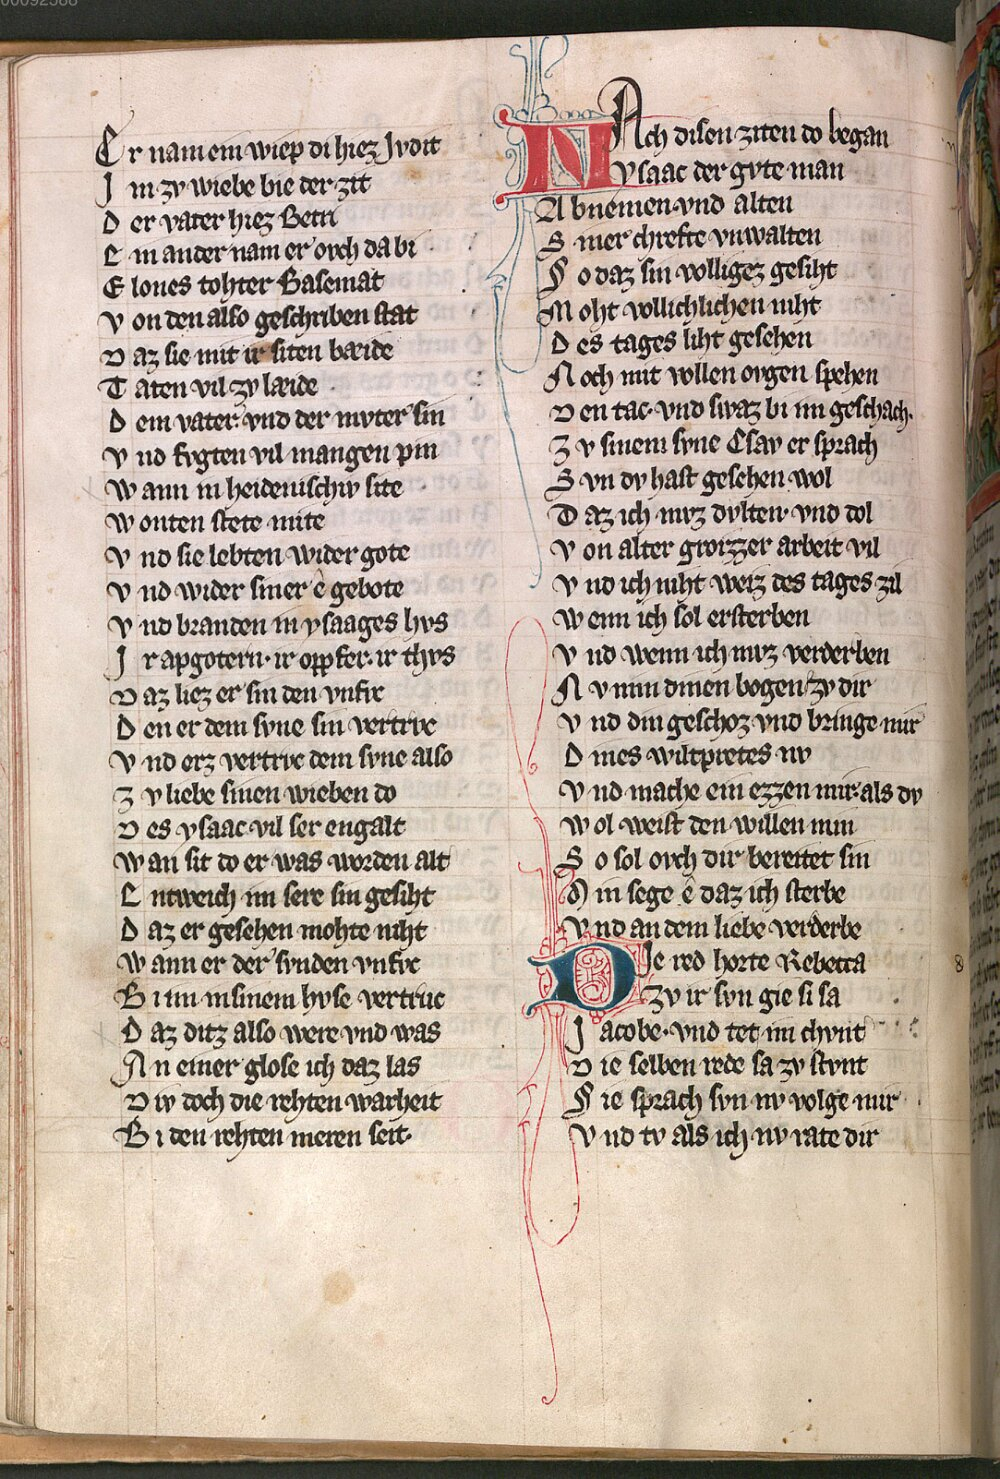 00092588
Er nam ein wiep di hiez Jvdit
J m zv wiebe bie der zit
D er vater hiez Beti
E in ander nam er ovch da bi
E lones tohter Basemat
V on den also geschriben stat
D az sie mit ir siten bæide
T aten vil zv læide
D em vater vnd der mvter sin
V nd fvgten vil mangen pin
W ann in heidenischiv site
W onten stete mite
V nd sie lebten wider gote
V nd wider siner ê gebote
V nd branden in ysaages hvs
J r apgotern ir opffer ir thvs
D az liez er sin den vnfvr
D en er dem svne sin vertrvc
V nd erz vertrvc dem svne also
Z v liebe sinen wieben do
D es ysaac vil ser engalt
W an sit do er was worden alt
E ntweich im sere sin gesiht
D az er gesehen mohte niht
W ann er der svnden vnfvc
B i im in sinem hvse vertruc
D az ditz also were vnd was
A n einer glose ich daz las
D iv doch die rehten warheit
B i den rehten meren seit
NAch disen ziten do began
Ysaac der gvte man
A bnemen vnd alten
S iner chrefte vnwalten
S o daz sin volligez gesiht
M oht vollichlichen niht
D es tages liht gesehen
N och mit vollen ovgen spehen
D en tac vnd swaz bi im geschach
Z v sinem svne Esav er sprach
S vn dv hast gesehen wol
D az ich mvz dvlten vnd dol
V on alter grozzer arbeit vil
V nd ich niht weiz des tages zil
W enn ich sol ersterben
V nd wenn ich mvz verderben
N v nim dinen bogen zv dir
V nd din geschoz vnd bringe mir
D ines wiltpretes nv
V nd mache ein ezzen mir als dv
W ol weist den willen min
S o sol ovch dir bereitet sin
M in sege ê daz ich sterbe
V nd an dem liebe verderbe
DJe red horte Rebecca
Zv ir svn gie si sa
J acobe vnd tet im chvnt
D ie selben rede sa zv stvnt
S ie sprach svn nv volge mir
V nd tv als ich nv rate dir